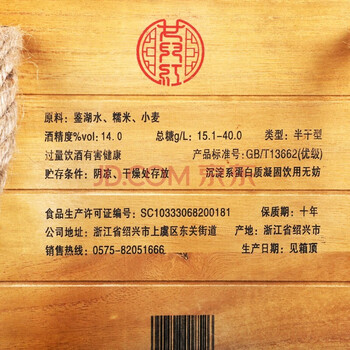 女兒紅
原料：鉴湖水、糯米、小麦
酒精度%vol：14.0 总糖g/L：15.1-40.0 类型：半干型
过量饮酒有害健康 产品标准号：GB/T13662(优级)
贮存条件：阴凉、干燥处存放 沉淀系蛋白质凝固饮用无妨
JD.COM 京东
食品生产许可证编号：SC10333068200181 保质期：十年
公司地址：浙江省绍兴市上虞区东关街道 产地：浙江省绍兴市
销售热线：0575-82051666 生产日期：见箱顶